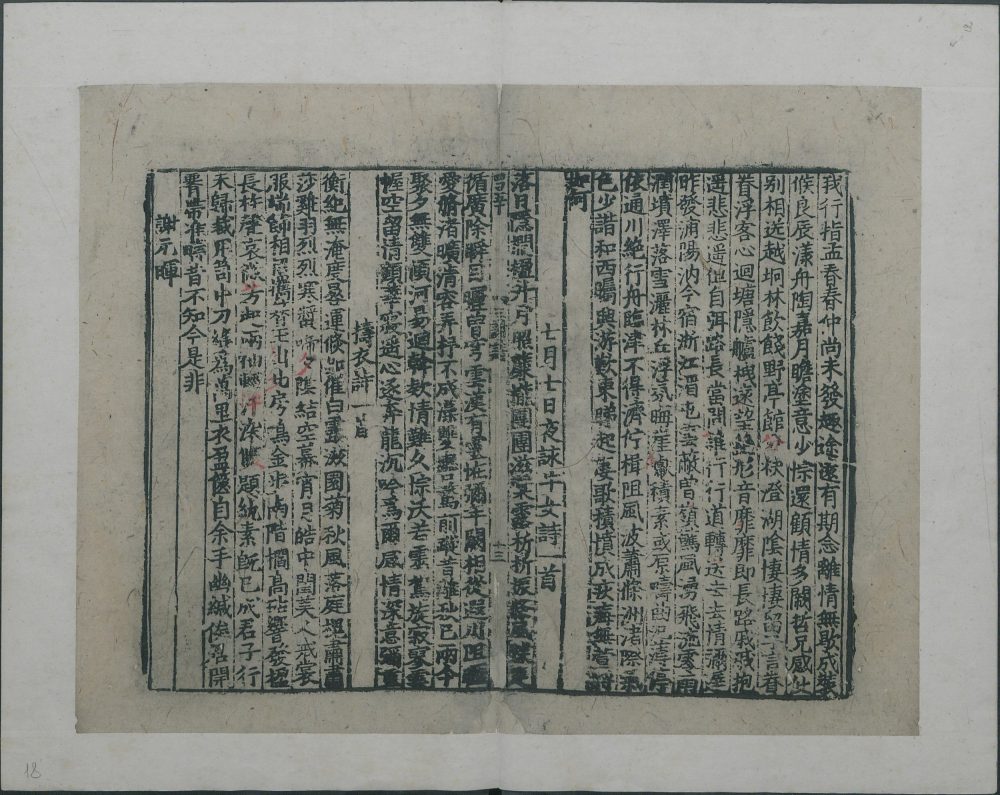 我行指孟春春仲尚未發趣途遠有期念離情無歇成裝
候良辰漾舟陶嘉月瞻塗意少悰還顧情多闕哲兄感仳
別相送越坰林飲餞野亭館分袂澄湖陰悽悽留子言眷
眷浮客心迴塘隱艫栧遠望絶形音靡靡即長路戚戚抱
遙悲悲遙但自弭路長當語誰行行道轉遠去去情彌遲
昨發浦陽汭今宿浙江湄屯雲蔽曾嶺驚風涌飛流零雨
潤墳澤落雪灑林丘浮氛晦崖巘積素惑原疇曲汜薄停
依通川絶行舟臨津不得濟佇楫阻風波蕭條洲渚際氣
色少諧和西矚興游歎東睇起悽歌積憤成疢痗無萱將
如何
七月七日夜詠牛女詩一首
落日隱櫩楹升月照簾櫳團團滋葉露析析振條風蹀足
三謝詩
十三
循廣除瞬目曬曾穹雲漢有靈匹彌年闕相從遐川阻昵
愛脩渚曠清容弄杼不成藻聳轡騖前蹤昔離秋已兩今
聚夕無雙傾河易迴斡款情難久悰沃若靈駕旋寂寥雲
幄空留情顧華寢遙心逐奔龍沉吟爲爾感情深意彌重
擣衣詩一首
衡紀無淹度晷運倐如催白露滋園菊秋風落庭槐肅肅
莎雞羽烈烈寒螿啼夕陰結空幕宵月皓中閨美人戒裳
服端飾相招攜簪玉出北房鳴金步南階櫩高砧響發楹
長杵聲哀微芳起兩袖輕汗染雙題紈素旣已成君子行
未歸裁用笥中刀縫爲萬里衣盈篋自余手幽緘俟君開
署帶准疇昔不知今是非
謝元暉
18